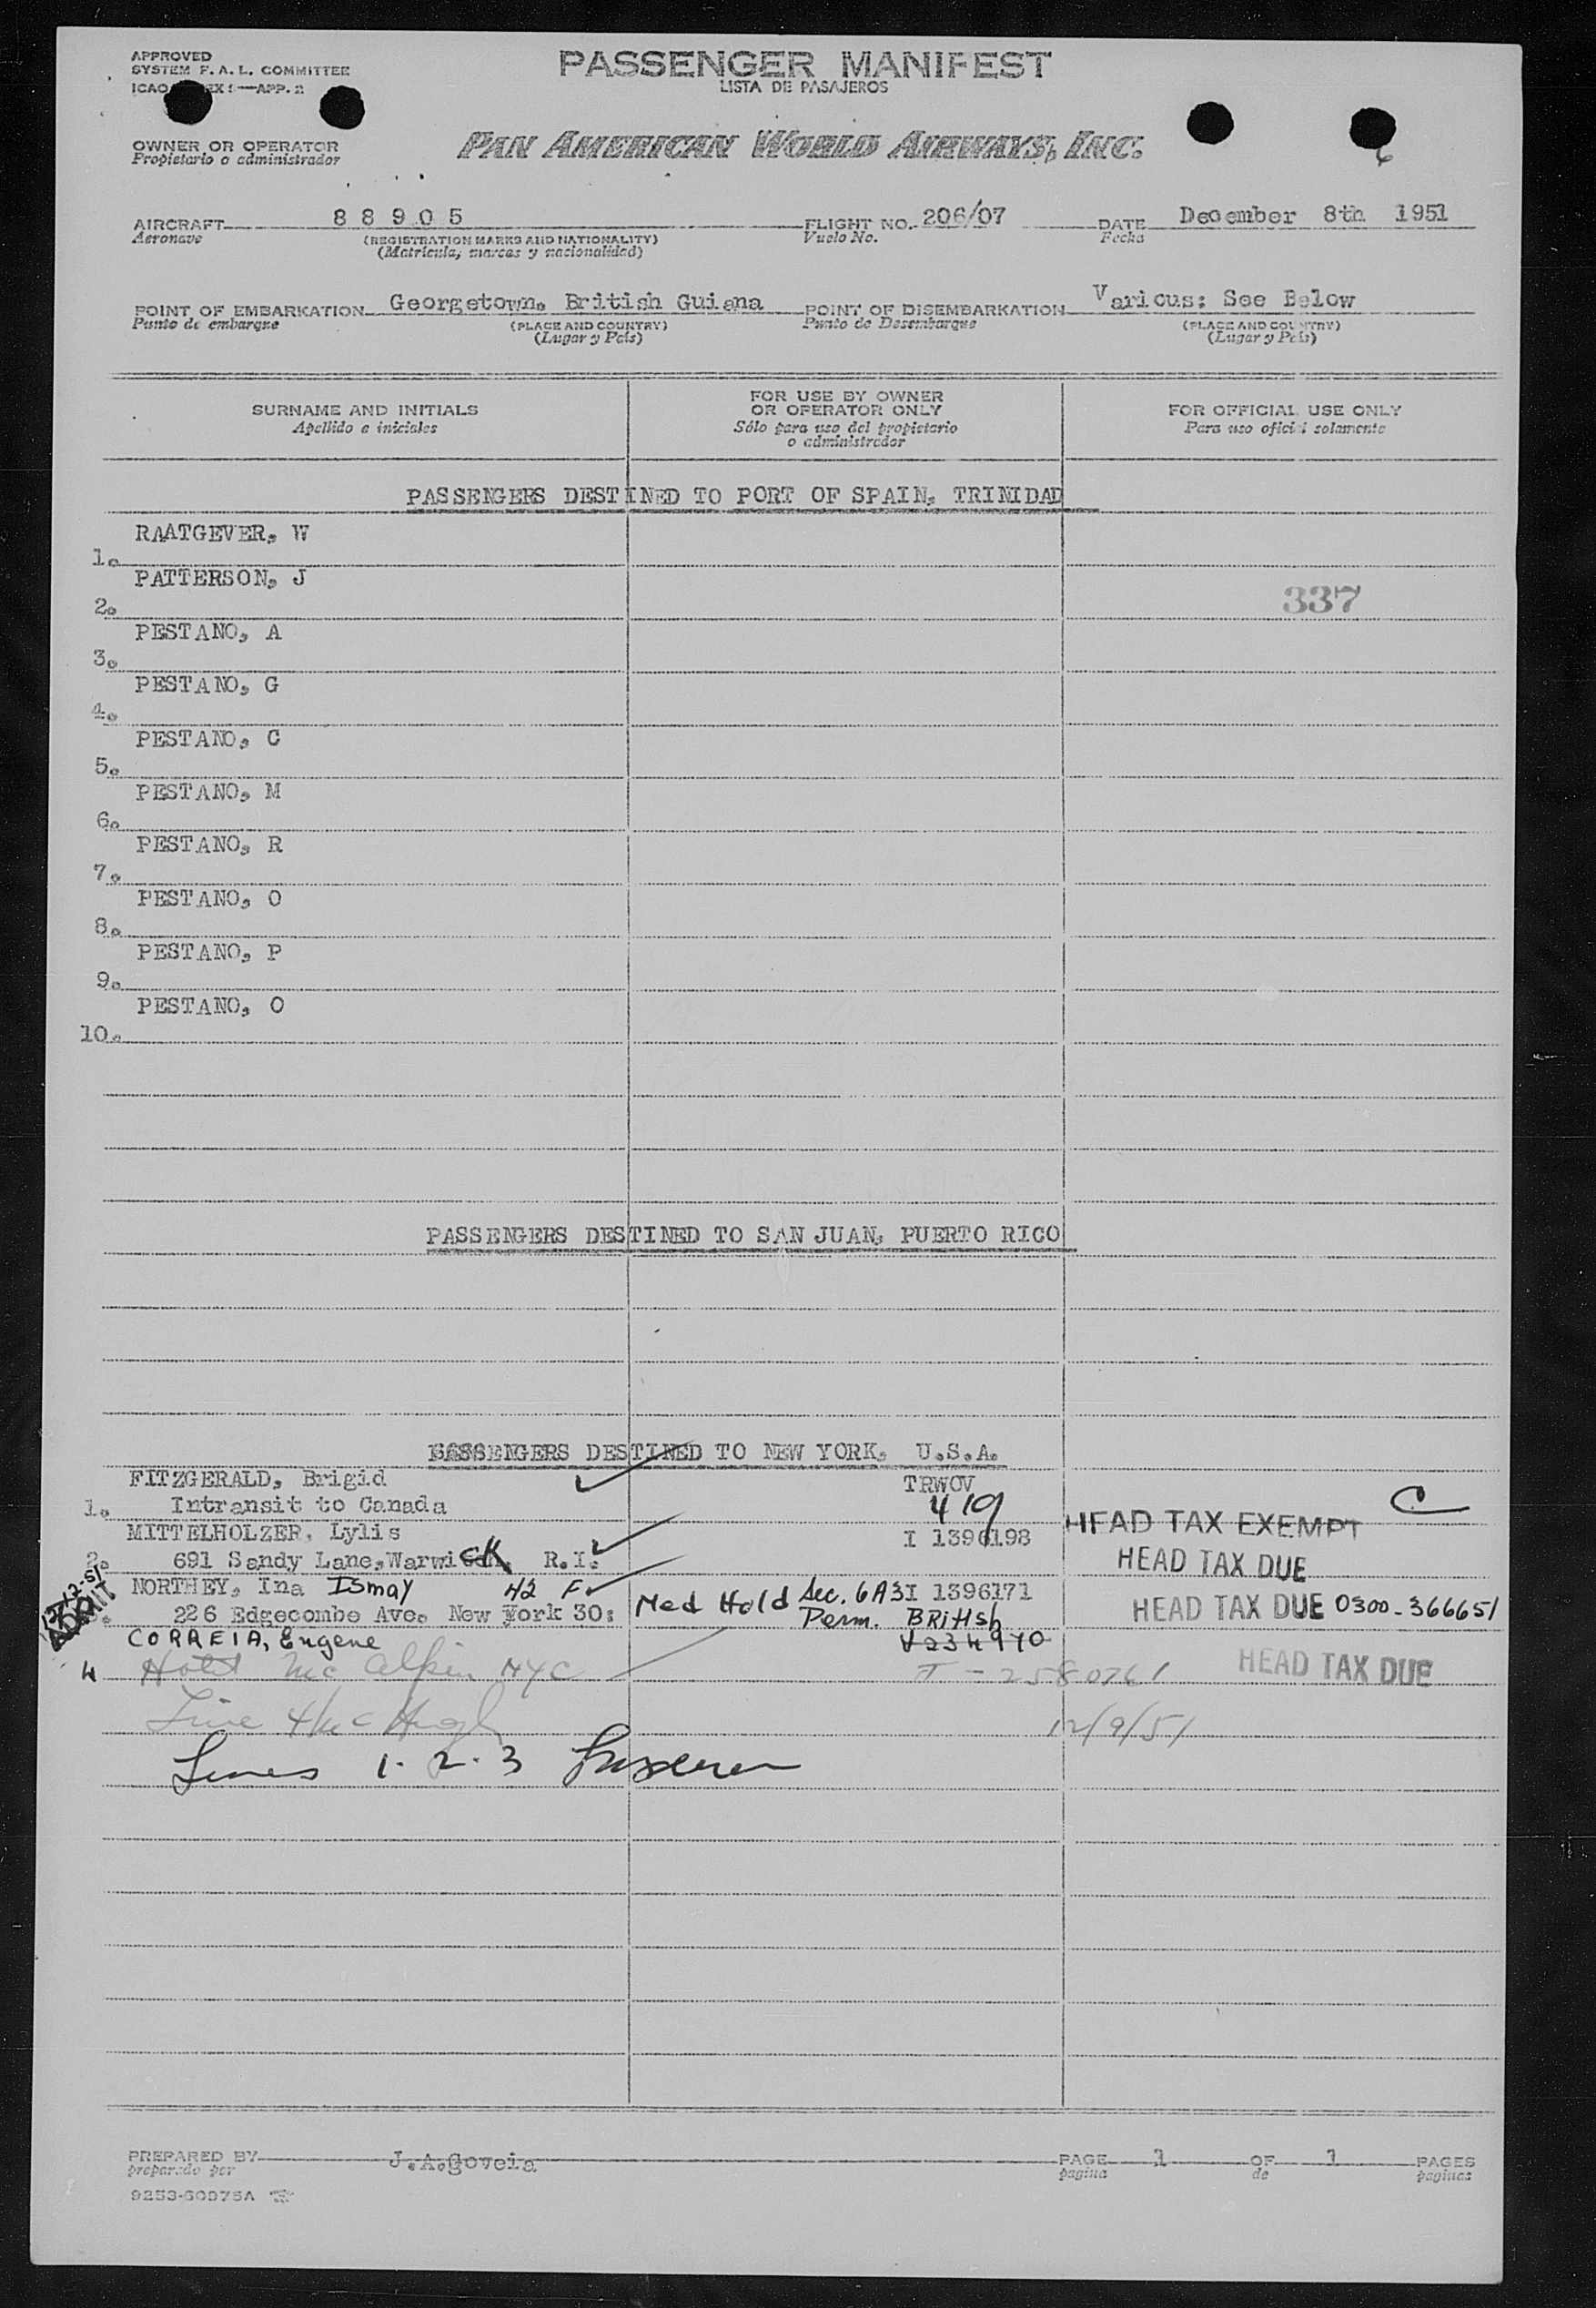 APPROVED
SYSTEM F. A. L. COMMITTEE
ICAO EX 9—APP. 2
PASSENGER MANIFEST
LISTA DE PASAJEROS
OWNER OR OPERATOR
Propietario o administrador
PAN AMERICAN WORLD AIRWAYS, INC.
6
AIRCRAFT 8 8 9 0 5 FLIGHT NO. 206/07 DATE December 8th 1951
Aeronave (REGISTRATION MARKS AND NATIONALITY) Vuelo No. Fecha
(Matricula, marcas y nacionalidad)
POINT OF EMBARKATION Georgetown, British Guiana POINT OF DISEMBARKATION Various: See Below
Punto de embarque (PLACE AND COUNTRY) Punto de Desembarque (PLACE AND COUNTRY)
(Lugar y País) (Lugar y País)
SURNAME AND INITIALS
Apellido e iniciales
FOR USE BY OWNER
OR OPERATOR ONLY
Sólo para uso del propietario
o administrador
FOR OFFICIAL USE ONLY
Para uso oficial solamente
PASSENGERS DESTINED TO PORT OF SPAIN, TRINIDAD
RAATGEVER, W
1.
PATTERSON, J
2. 337
PESTANO, A
3.
PESTANO, G
4.
PESTANO, C
5.
PESTANO, M
6.
PESTANO, R
7.
PESTANO, O
8.
PESTANO, P
9.
PESTANO, O
10.
PASSENGERS DESTINED TO SAN JUAN, PUERTO RICO
PASSENGERS DESTINED TO NEW YORK, U.S.A.
FITZGERALD, Brigid TRWOV
1. Intransit to Canada 419 HEAD TAX EXEMPT C
MITTELHOLZER, Lylis I 1396198
2. 691 Sandy Lane, Warwick, R.I. HEAD TAX DUE
12-12-51
ADMIT
NORTHEY, Ina Ismay 42 F Med Hold Sec. 6A3 I 1396171
226 Edgecombe Ave. New York 30: Perm. BRitish HEAD TAX DUE 0300-366651
CORREIA, Eugene V234970
4 Hotel Mc Alpin NYC I-2580761 HEAD TAX DUE
Line 4 12/9/51
Lines 1. 2. 3
PREPARED BY J.A.Goveia PAGE 1 OF 1 PAGES
preparado por pagina de paginas
9253-60975A